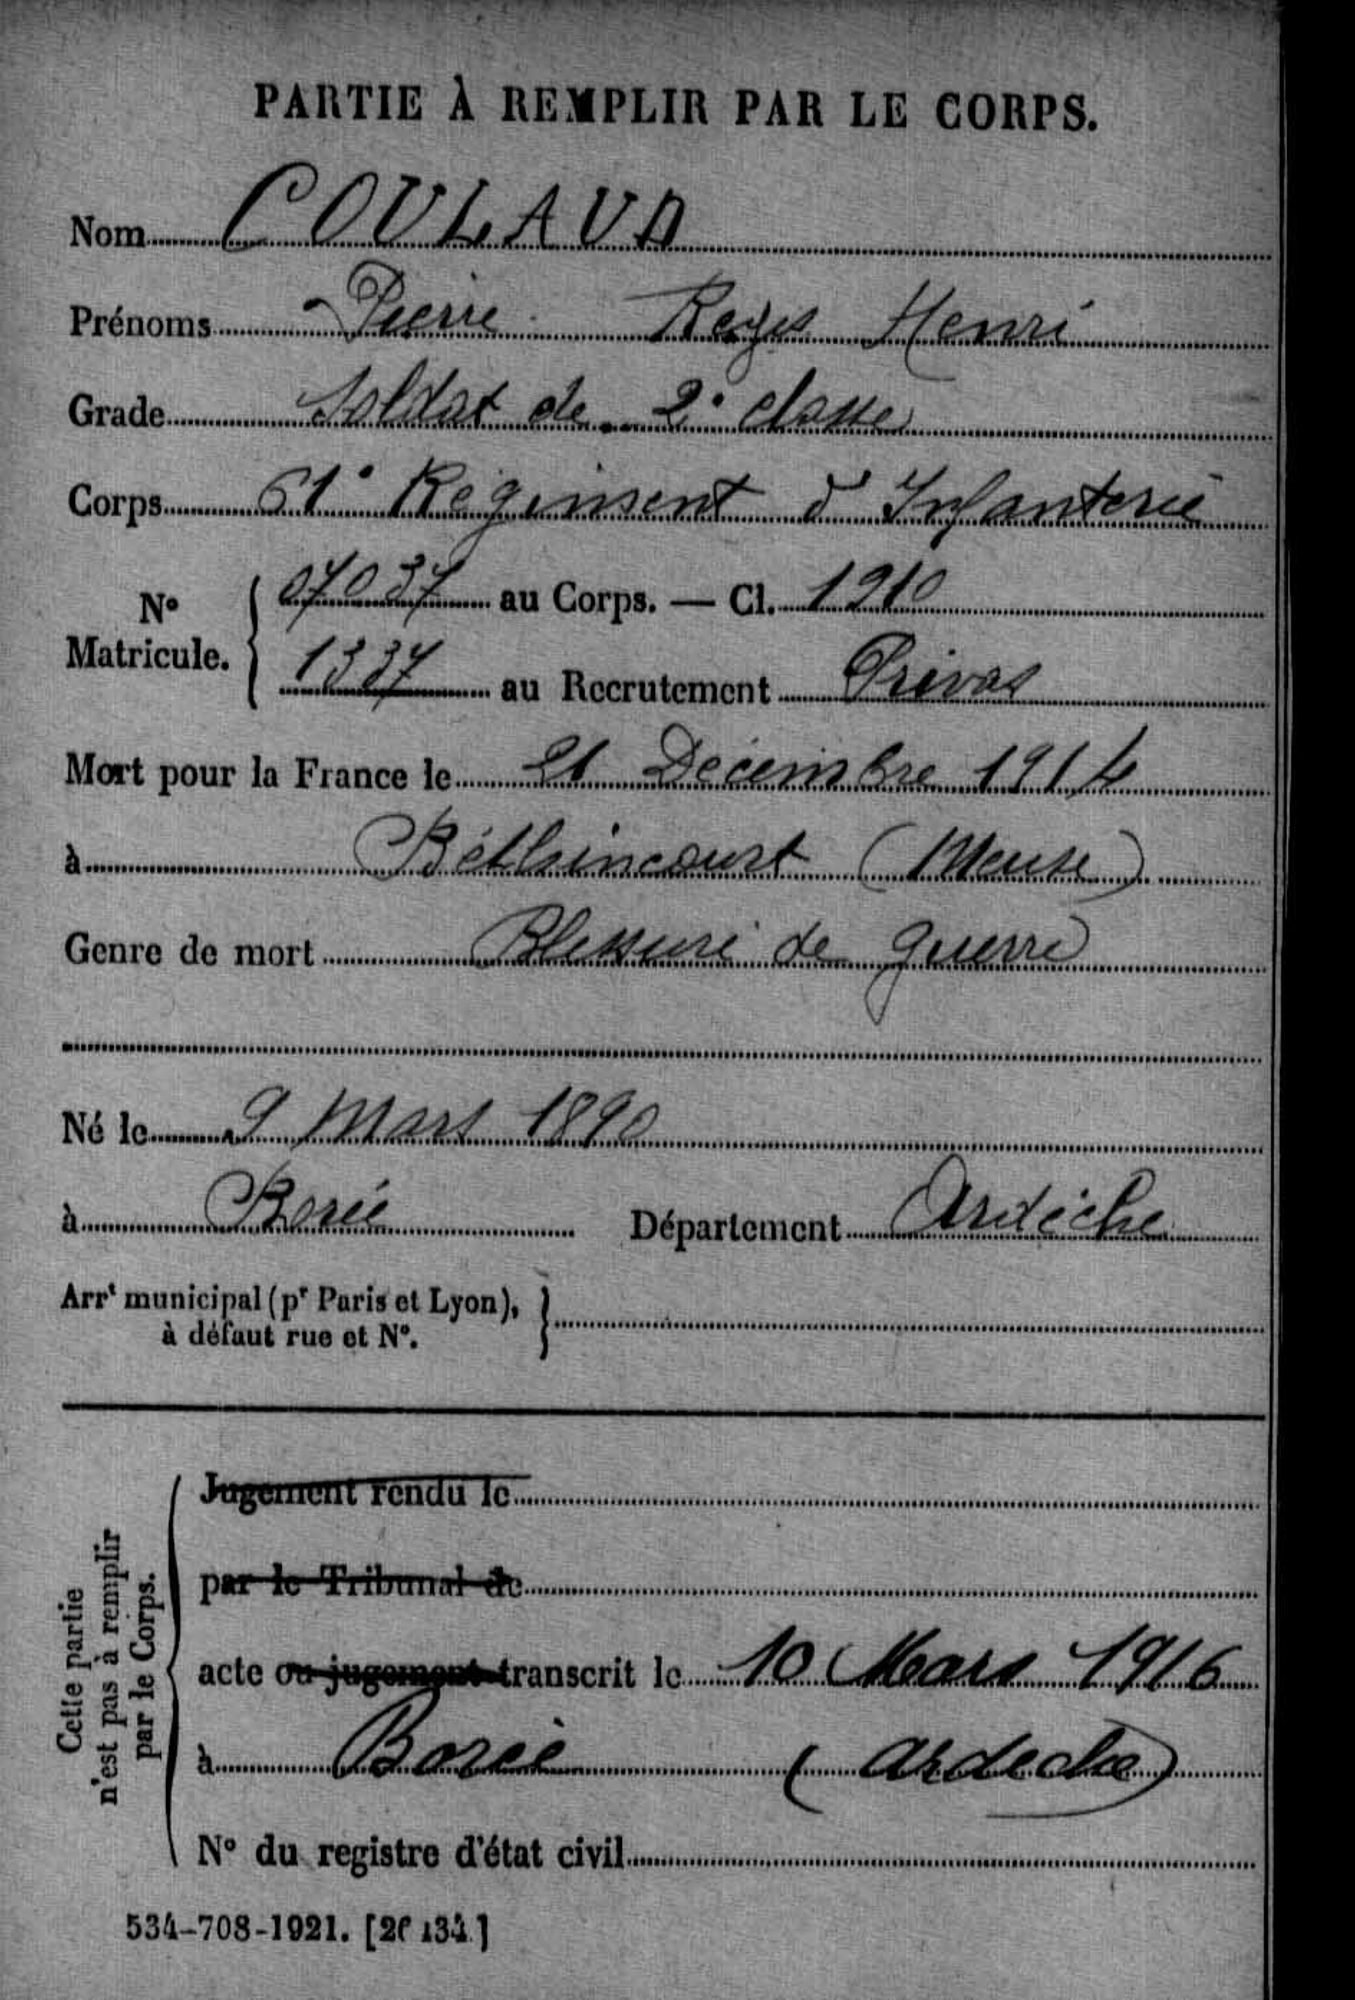 PARTIE À REMPLIR PAR LE CORPS.
Nom COULAUD
Prénoms Pierre Regis Henri
Grade Soldat de 2e classe
Corps 61e Régiment d'Infanterie
No Matricule. { 07037 au Corps. — Cl. 1910
1337 au Recrutement Privas
Mort pour la France le 21 Décembre 1914
à Béthincourt (Meuse)
Genre de mort Blessure de guerre
Né le 9 Mars 1890
à Borée Département Ardèche
Arrt municipal (pr Paris et Lyon), }
à défaut rue et No.
Cette partie
n'est pas à remplir
par le Corps.
Jugement rendu le
par le Tribunal de
acte ou jugement transcrit le 10 Mars 1916
à Borée (Ardeche)
No du registre d'état civil
534-708-1921. [26134.]